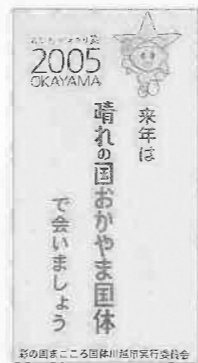 2005
OKAYAMA
来年は
晴れの国おかやま国体
で会いましょう
彩の国まごころ国体川越市実行委員会